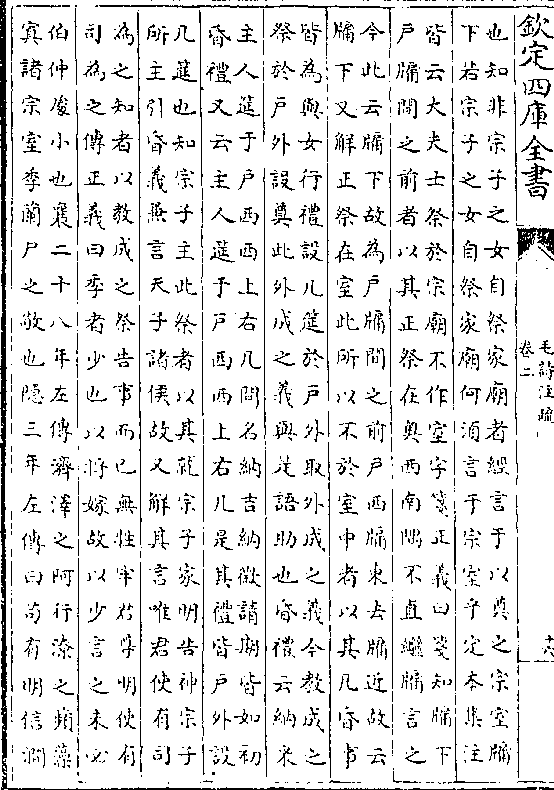 欽定四庫全書
毛詩注疏
卷二
十六
也知非宗子之女自祭家廟者經言于以奠之宗室牖
下若宗子之女自祭家廟何須言于宗室乎定本集注
皆云大夫士祭於宗廟不作室字箋正義曰箋知牖下
戶牖間之前者以其正祭在奧西南隅不直繼牖言之
今此云牖下故為戶牖間之前戶西牖東去牖近故云
牖下又解正祭在室此所以不於室中者以其凡昏事
皆為與女行禮設几筵於戶外取外成之義今教成之
祭於戶外設奠此外成之義與是語助也昏禮云納采
主人筵于戶西西上右几問名納吉納徵請期皆如初
昏禮又云主人筵于戶西西上右几是其禮皆戶外設
几筵也知宗子主此祭者以其就宗子家明告神宗子
所主引昏義兼言天子諸侯故又解其言唯君使有司
為之知者以教成之祭告事而已無牲牢君尊明使有
司為之傳正義曰季者少也以將嫁故以少言之未必
伯仲處小也襄二十八年左傳濟澤之阿行潦之蘋藻
寘諸宗室季蘭尸之敬也隱三年左傳曰苟有明信澗